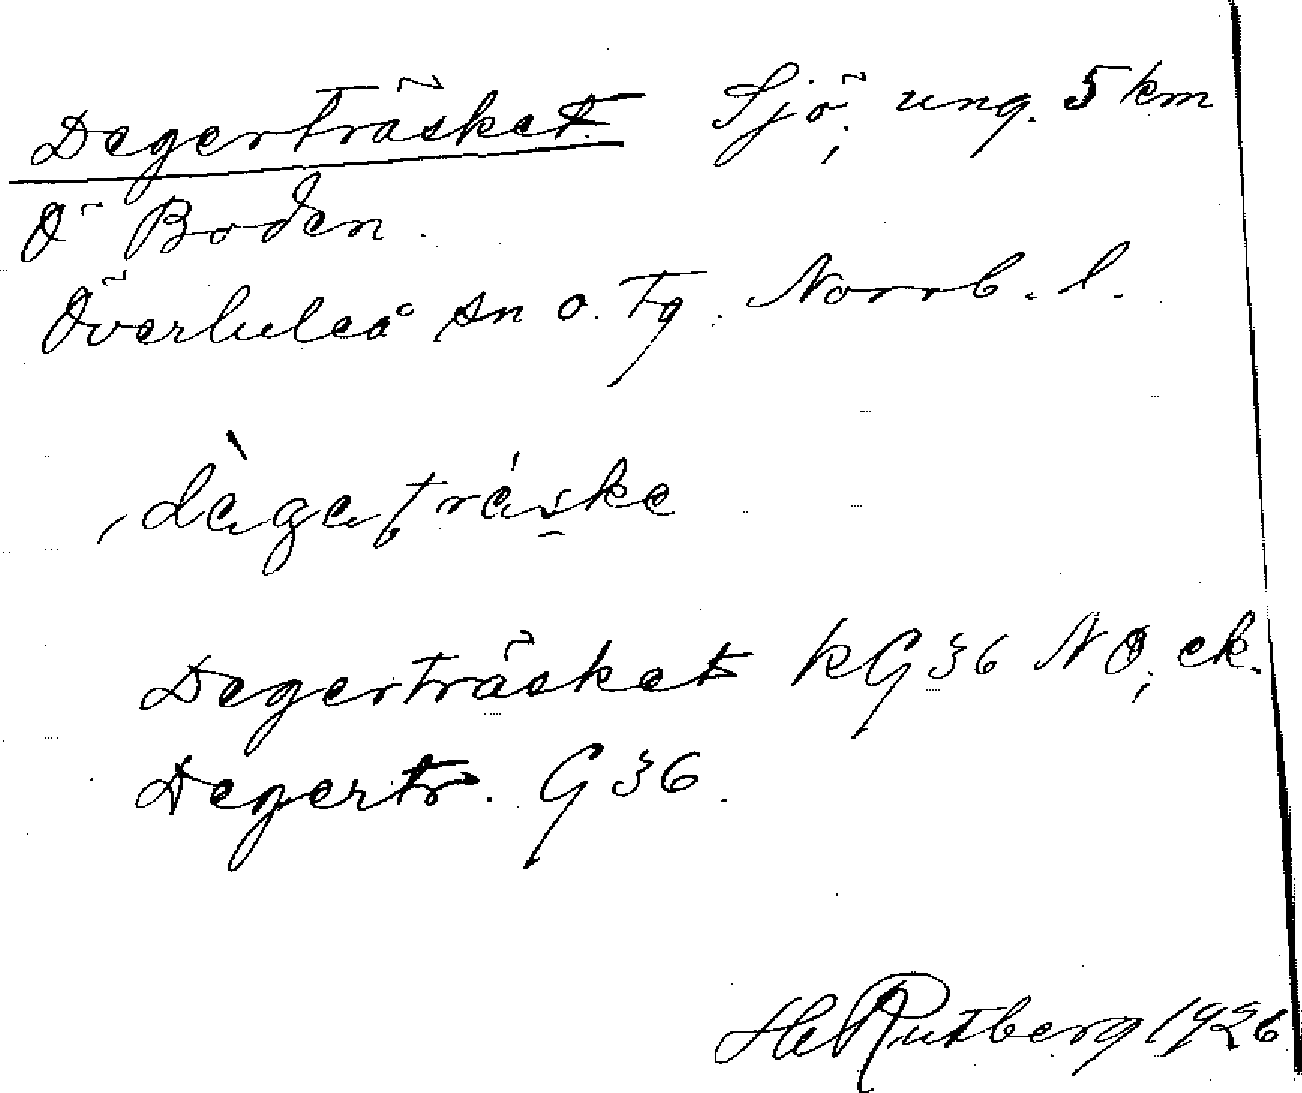 Degerträsket. Sjö, ung. 5 km
Ö Boden.
Överluleå sn o. Tg. Norrb. l.
dègaträske
Degerträsket kG 36 NO, ek.
Degertr. G 36.
He Rutberg 1926